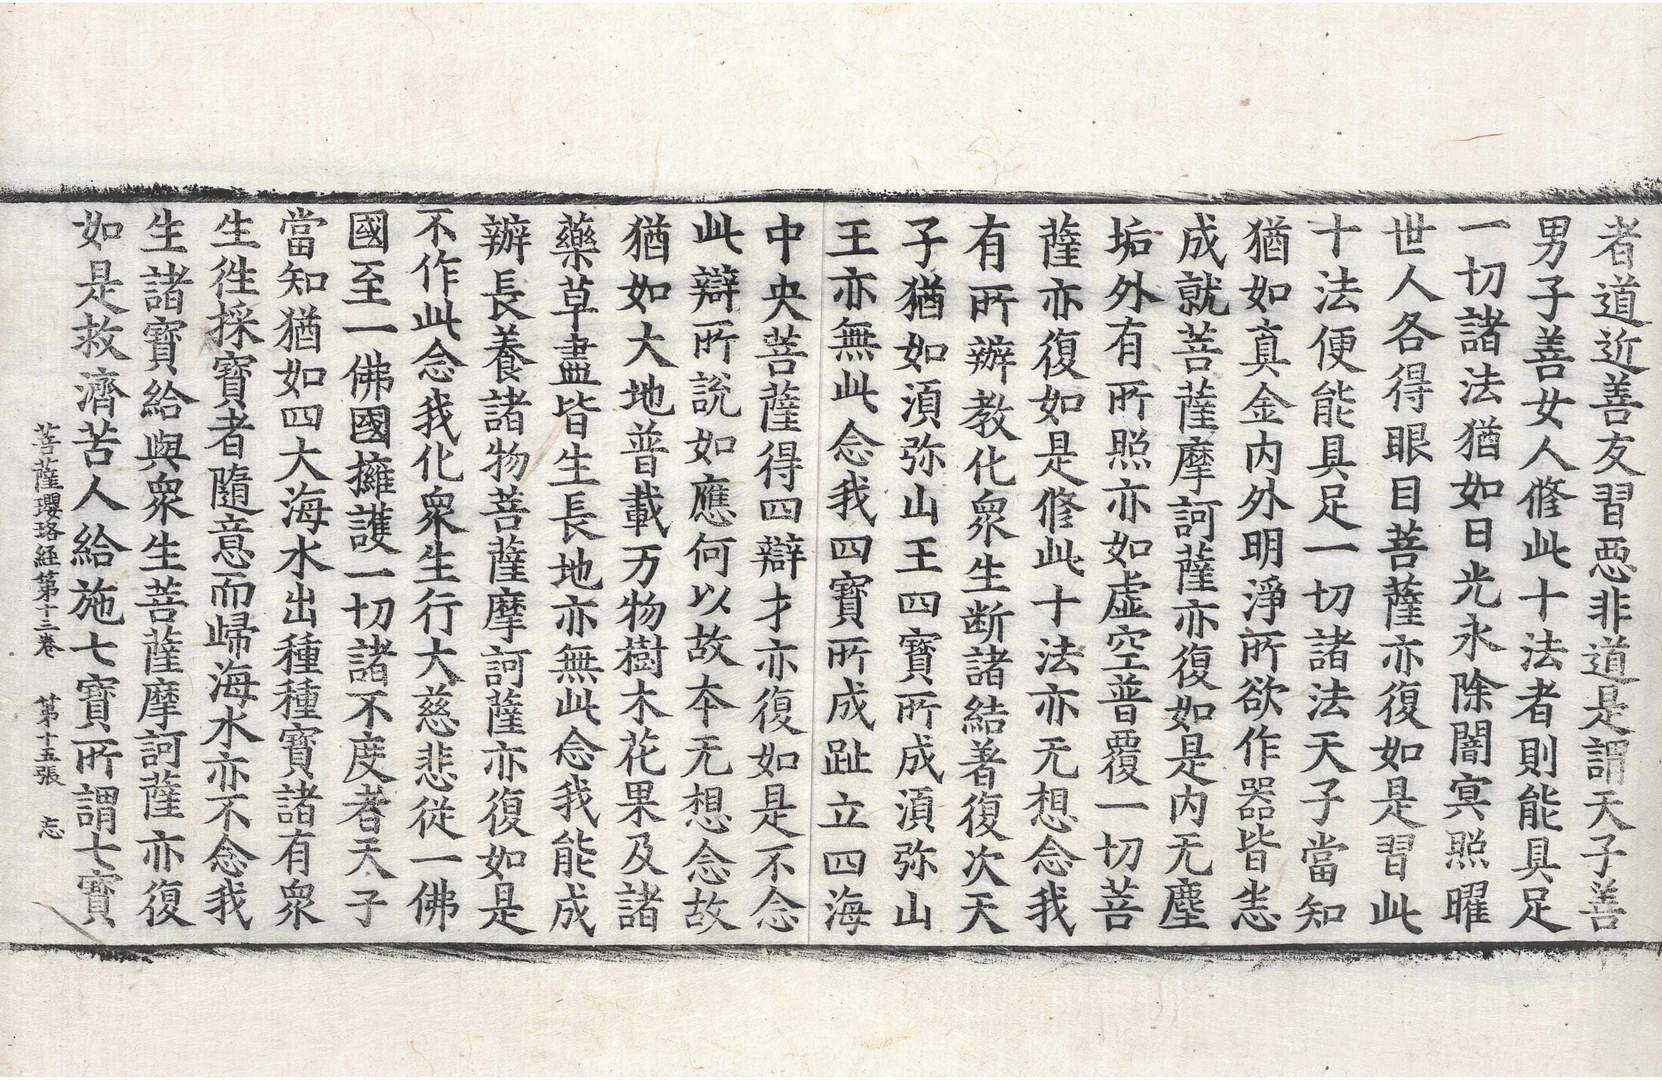 者道近善友習惡非道是謂天子善
男子善女人修此十法者則能具足
一切諸法猶如日光永除闇冥照曜
世人各得眼目菩薩亦復如是習此
十法便能具足一切諸法天子當知
猶如真金內外明淨所欲作器皆悉
成就菩薩摩訶薩亦復如是內无塵
垢外有所照亦如虛空普覆一切菩
薩亦復如是修此十法亦无想念我
有所辦教化衆生断諸結著復次天
子猶如湏弥山王四寶所成湏弥山
王亦無此念我四寶所成趾立四海
中央菩薩得四辯才亦復如是不念
此辯所說如應何以故本无想念故
猶如大地普載万物樹木花果及諸
藥草盡皆生長地亦無此念我能成
辦長養諸物菩薩摩訶薩亦復如是
不作此念我化衆生行大慈悲從一佛
國至一佛國擁護一切諸不度者天子
當知猶如四大海水出種種寶諸有衆
生徃採寶者隨意而歸海水亦不念我
生諸寶給與衆生菩薩摩訶薩亦復
如是救濟苦人給施七寶所謂七寶
菩薩瓔珞經第十三卷 第十五張 志